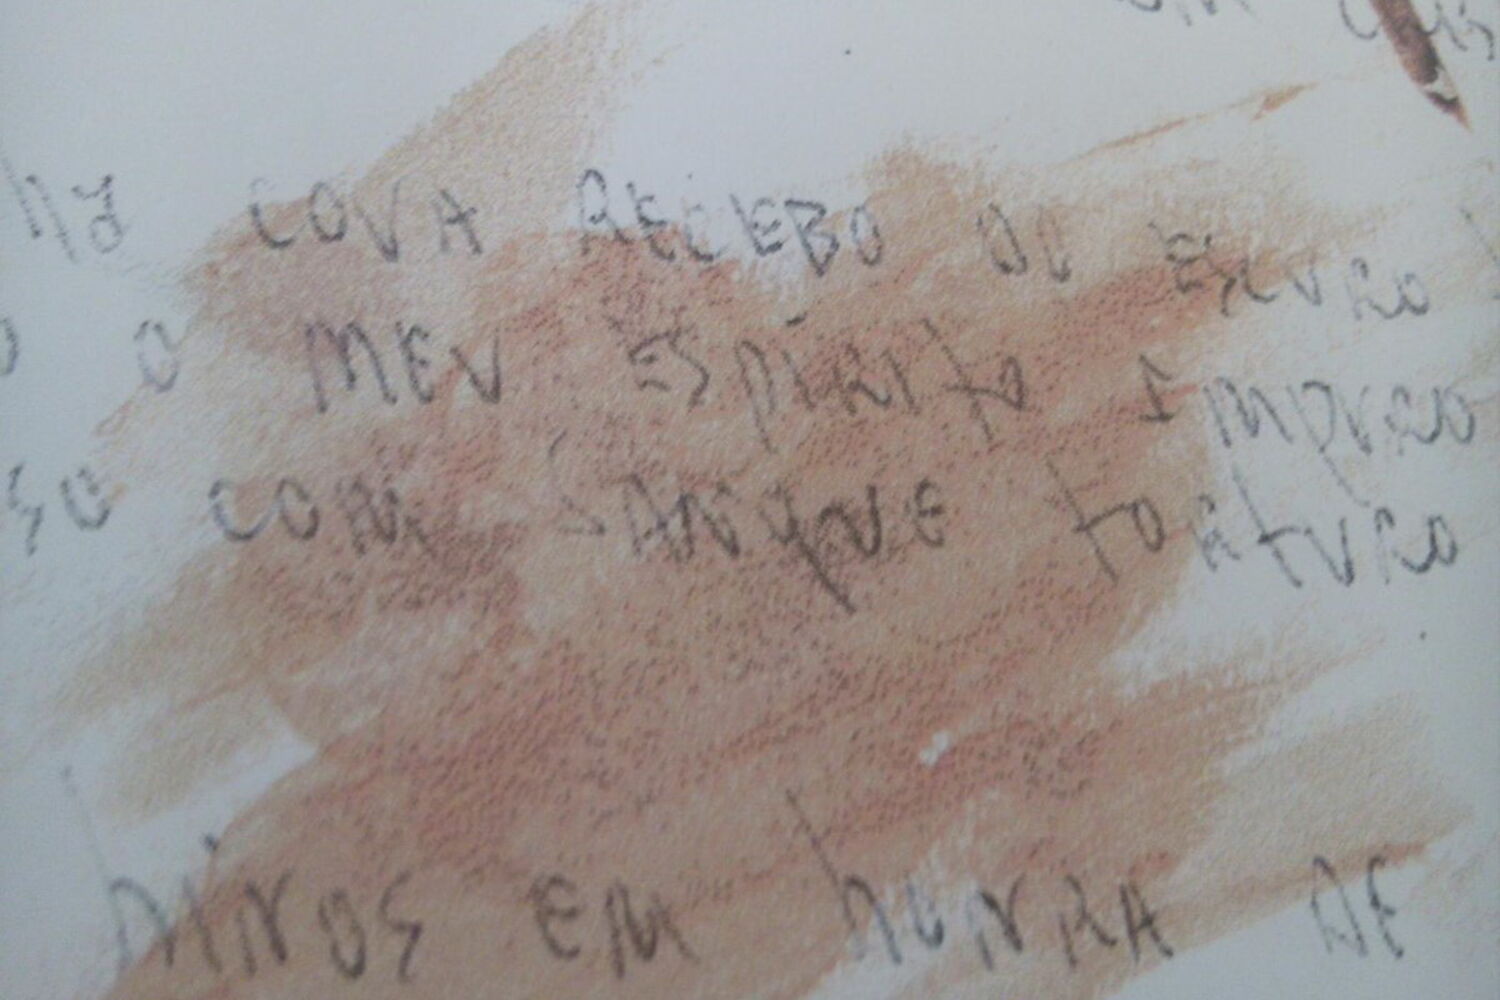 COVA RECEBO OC ESCURO
O MEU ESPIRITO IMPURO
SO COM SANGUE TORTURO
hINOS EM hONRA DE